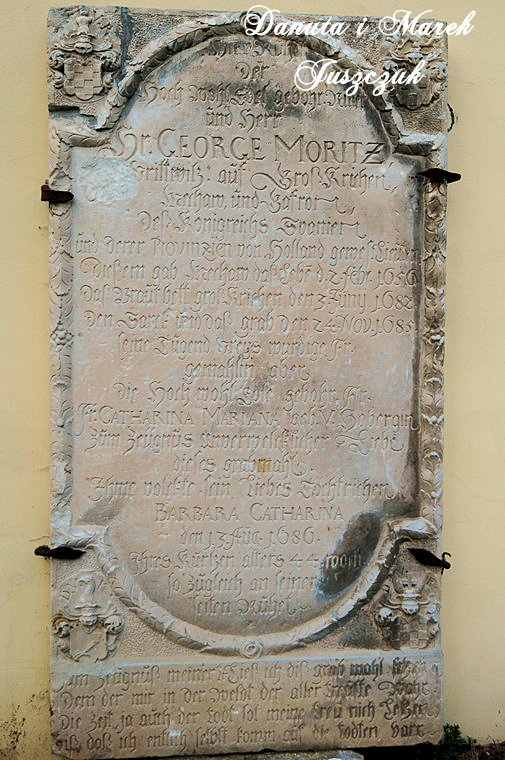 Danuta i Marek
Juszczuk
Hier Ruhet
Der
Hoch Wohl Edel gebohr: Ritter
und Herr
Hr. GEORGE MORITZ
auf Groß Krichen,
und
Deß Königreichs Spanien
und Derer PROVINZIEN von Holland geweß:
Diesem gab daß Lebe d. 2 1656
Daß Braut bett groß Krichen, den 3 Juny 1682
Den Sarck und daß grab den 24 NOV: 1685
seine Tugend
gemahlin aber
die Hoch wohl Edle gebohr: Fr.
Fr. CATHARINA MARIANA geb: V:
zum Zeugnüs unverweßklicher Liebe
dieses grabmahl.
Ihme volckte sein Liebes Tochtrichen
BARBARA CATHARINA
den 13 Aug: 1686.
Ihres Kurtzen alters 44 woch
so zugleich an seiner
seiten Ruhet
Zum Zeugnüß meiner Ließ ich diß grab mahl
Dem der mir in der Weldt der aller Wahr
Die Zeit ja auch der todt sol meine treu nich
biß daß ich entlich selbst komm auf die todten